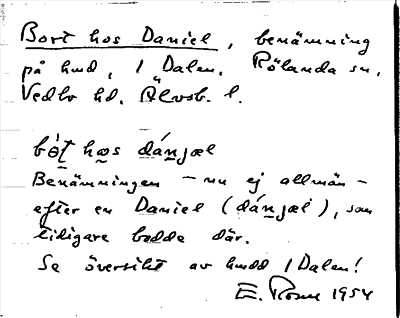 Bort hos Daniel, benämning
på hmd, I Dalen, Rölanda sn,
Vedbo hd, Älvsb. l.
bót hos dánjæl
Benämningen – nu ej allmän –
efter en Daniel (dánjæl), som
tidigare bodde där.
Se översikt av hmdd I Dalen!
E. 1954